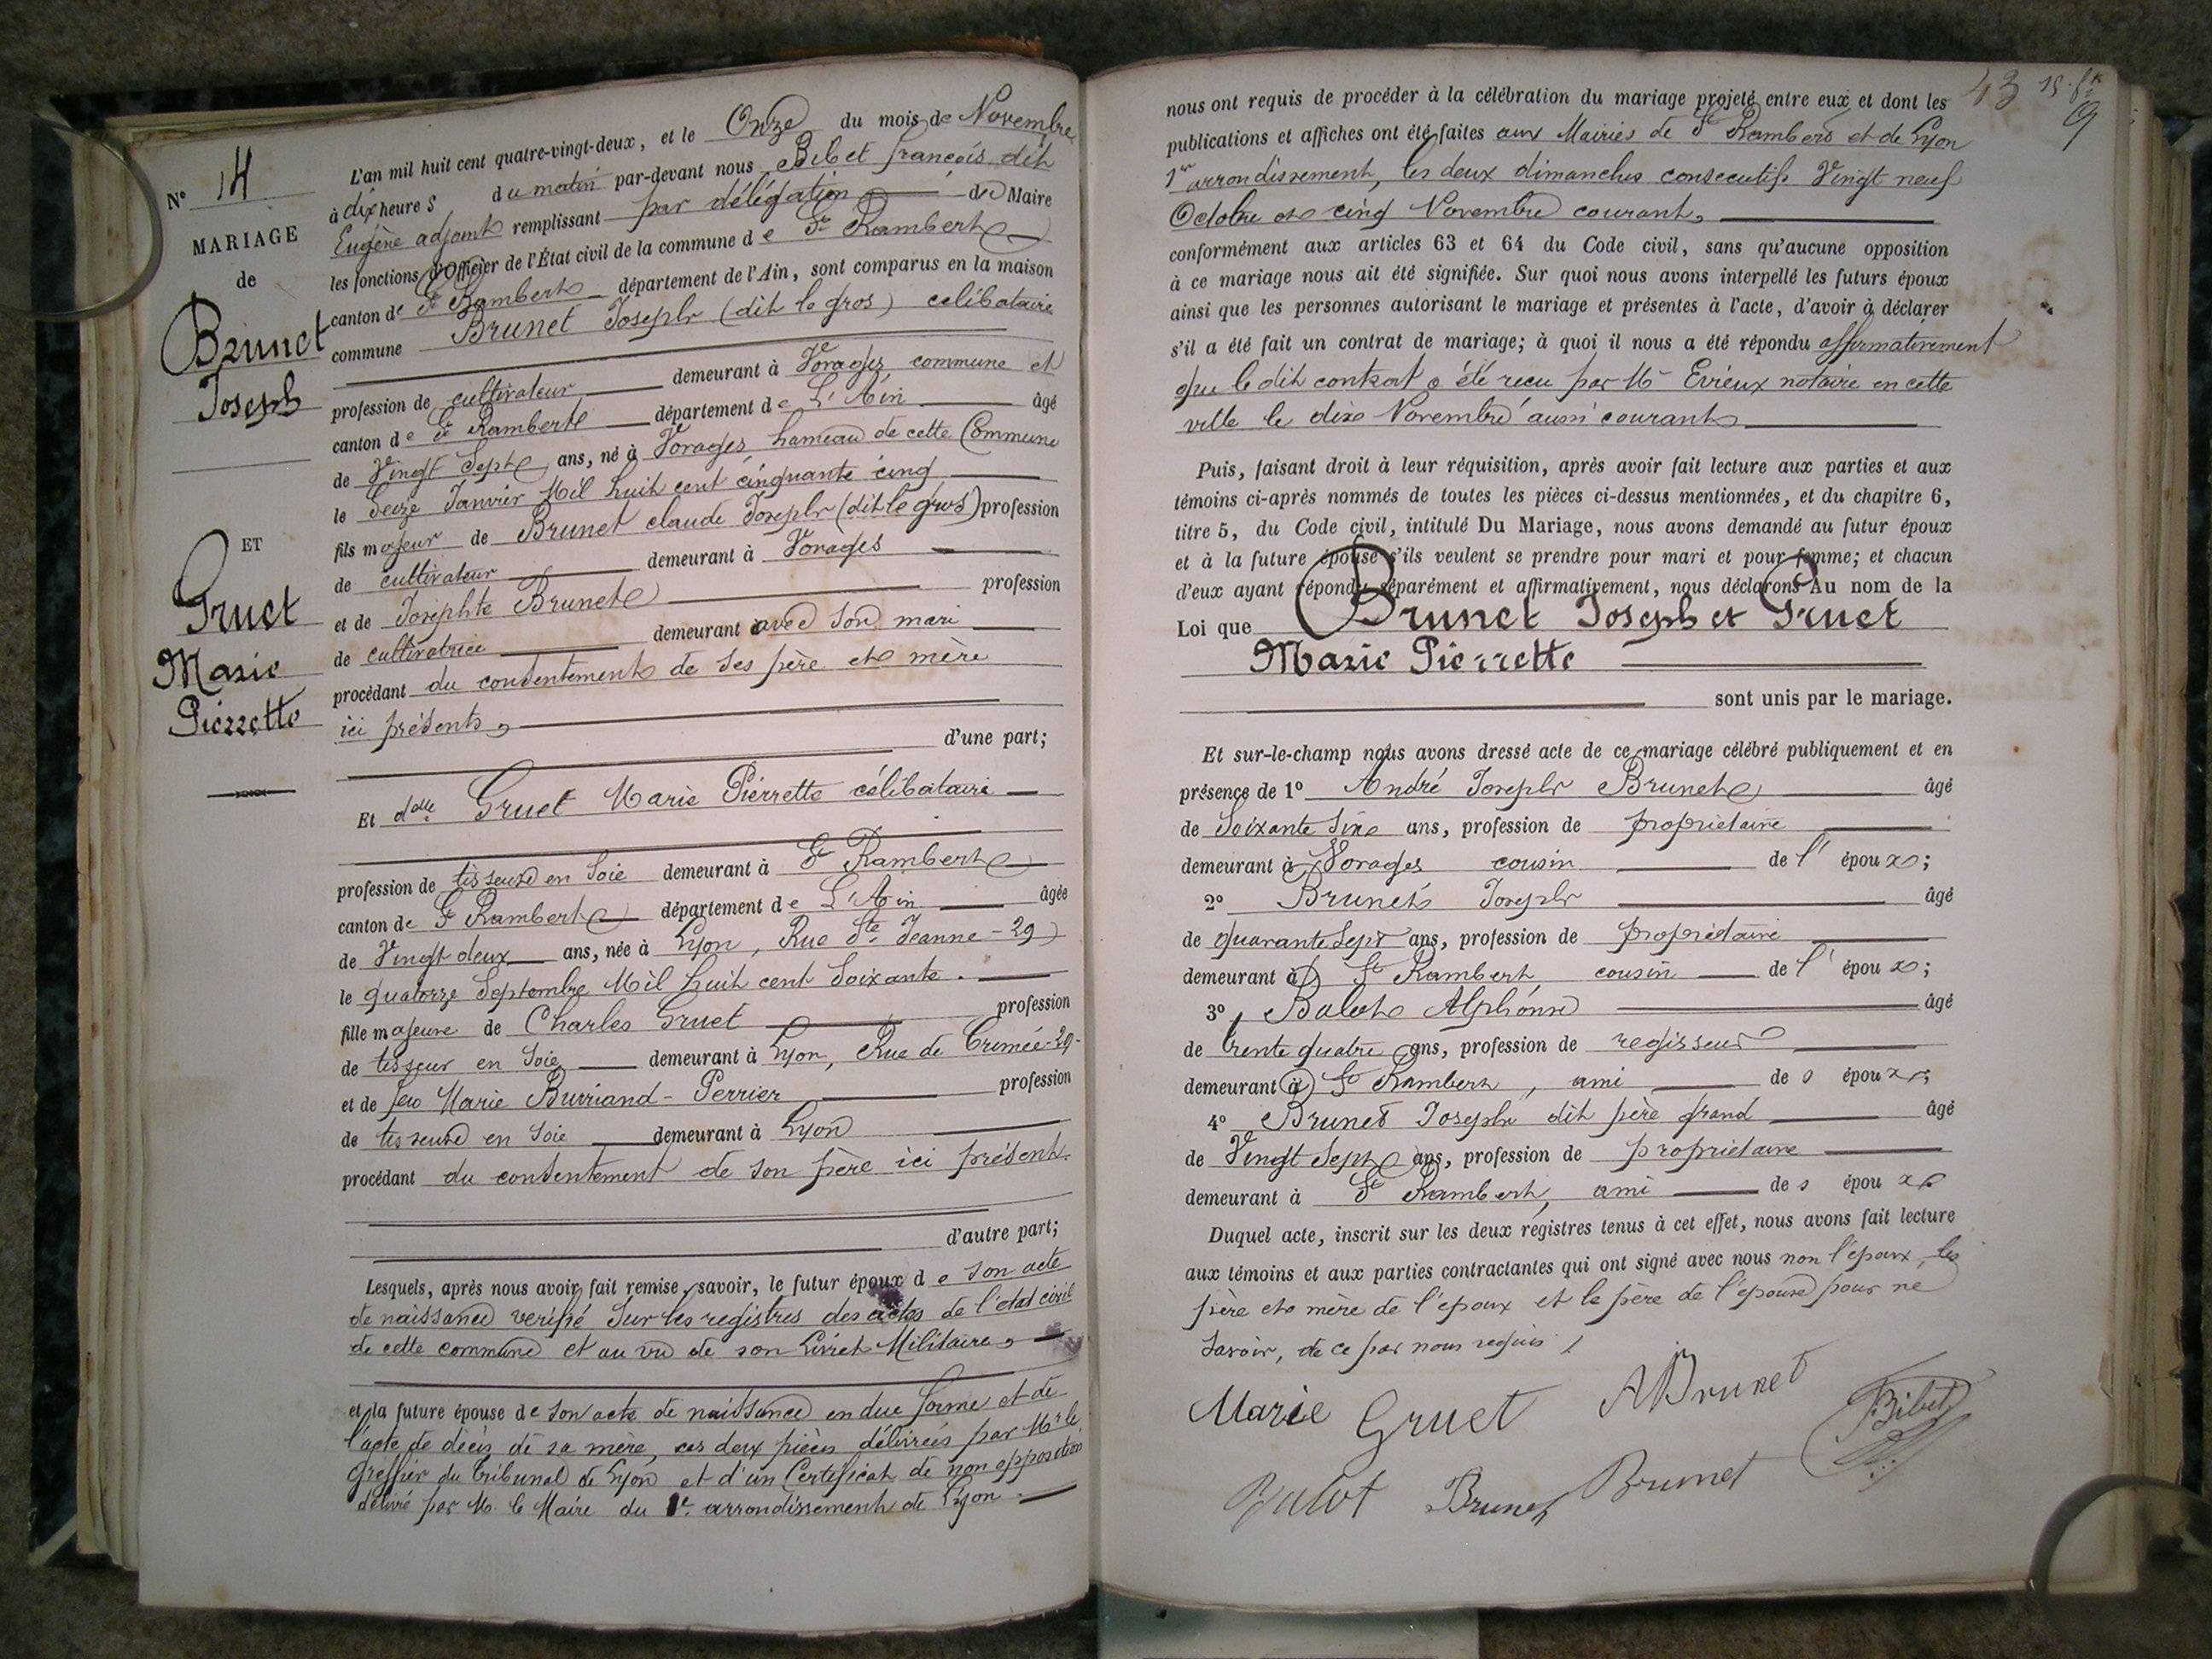 N° 14
MARIAGE
de
Brunet
Joseph
ET
Gruet
Marie
Pierrette
L'an mil huit cent quatre-vingt-deux, et le Onze du mois de Novembre
à dix heure s du matin par-devant nous Bibet françois dit
Eugène adjoint remplissant par délégation de Maire
les fonctions d'Officier de l'État civil de la commune d e St Rambert
canton de St Rambert département de l'Ain, sont comparus en la maison
commune Brunet Joseph (dit le gros) célibataire
profession de cultivateur demeurant à Vorages commune et
canton de St Rambert département d e L'Ain âgé
de Vingt Sept ans, né à Vorages, hameau de cette Commune
le Seize Janvier Mil huit cent cinquante cinq
fils majeur de Brunet claude Joseph (dit le gros) profession
de cultivateur demeurant à Vorages
et de Josephte Brunet profession
de cultivatrice demeurant avec son mari
procédant du consentement de ses père et mère
ici présents,
d'une part;
Et dlle Gruet Marie Pierrette célibataire
profession de tisseuse en soie demeurant à St Rambert
canton de St Rambert département d e L'Ain âgée
de Vingt deux ans, née à Lyon, Rue Ste Jeanne - 29
le quatorze Septembre Mil huit cent Soixante.
fille majeure de Charles Gruet profession
de tisseur en soie demeurant à Lyon, Rue de Crimée-29-
et de feu Marie Burriand-Perrier profession
de tisseuse en soie demeurant à Lyon
procédant du consentement de son père ici présent.
d'autre part;
Lesquels, après nous avoir fait remise, savoir, le futur époux d e son acte
de naissance verifié sur les registres des actes de l'état civil
de cette commune et au vu de son Livret Militaire,
et la future épouse de son acte de naissance en due forme et de
l'acte de décès de sa mère, ces deux pièces délivrées par Mr le
Greffier du tribunal de Lyon et d'un Certificat de non opposition
délivré par M. le Maire du 1er arrondissement de Lyon.
43
nous ont requis de procéder à la célébration du mariage projeté entre eux et dont les
publications et affiches ont été faites aux Mairies de St Rambert et de Lyon
1er arrondissement, les deux dimanches consecutifs Vingt neuf
Octobre et cinq Novembre courant,
conformément aux articles 63 et 64 du Code civil, sans qu'aucune opposition
à ce mariage nous ait été signifiée. Sur quoi nous avons interpellé les futurs époux
ainsi que les personnes autorisant le mariage et présentes à l'acte, d'avoir à déclarer
s'il a été fait un contrat de mariage; à quoi il nous a été répondu affirmativement
que le dit contrat a été reçu par Me Evieux notaire en cette
ville le dix Novembre aussi courant
Puis, faisant droit à leur réquisition, après avoir fait lecture aux parties et aux
témoins ci-après nommés de toutes les pièces ci-dessus mentionnées, et du chapitre 6,
titre 5, du Code civil, intitulé Du Mariage, nous avons demandé au futur époux
et à la future épouse s'ils veulent se prendre pour mari et pour femme; et chacun
d'eux ayant répondu séparément et affirmativement, nous déclarons Au nom de la
Loi que Brunet Joseph et Gruet
Marie Pierrette
sont unis par le mariage.
Et sur-le-champ nous avons dressé acte de ce mariage célébré publiquement et en
présence de 1° André Joseph Brunet âgé
de Soixante Six ans, profession de propriétaire
demeurant à Vorages cousin de l' épou x;
2° Brunet Joseph âgé
de quarante Sept ans, profession de propriétaire
demeurant à St Rambert, cousin de l' épou x;
3° Balot Alphonse âgé
de trente quatre ans, profession de regisseur
demeurant à St Rambert, ami de s épou x;
4° Brunet Joseph dit père grand âgé
de Vingt Sept ans, profession de propriétaire
demeurant à St Rambert, ami de s épou x
Duquel acte, inscrit sur les deux régistres tenus à cet effet, nous avons fait lecture
aux témoins et aux parties contractantes qui ont signé avec nous non l'époux, les
père et mère de l'époux et le père de l'épouse pour ne
savoir, de ce par nous requis
Marie Gruet ABrunet Bibet
Balot Brunet Brunet